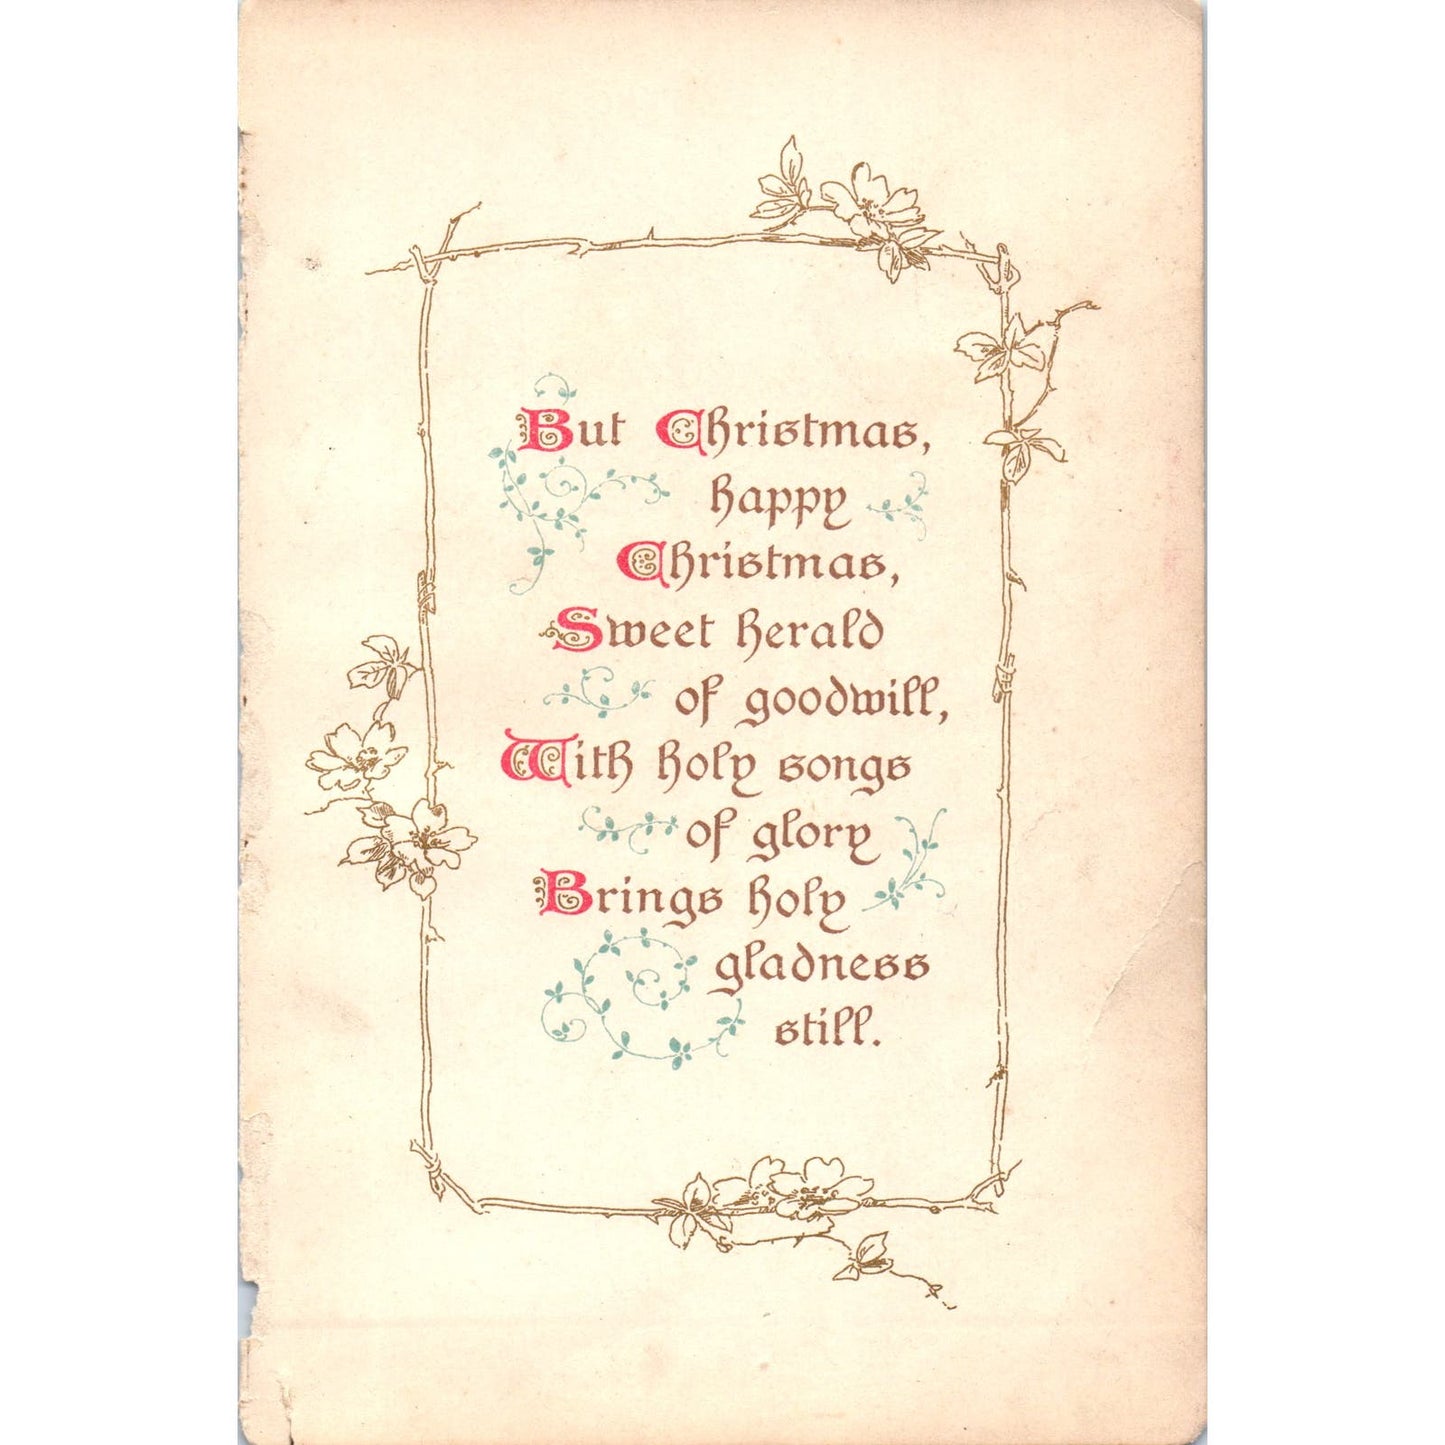 But Christmas,
happy
Christmas,
Sweet herald
of goodwill,
With holy songs
of glory
Brings holy
gladness
still.